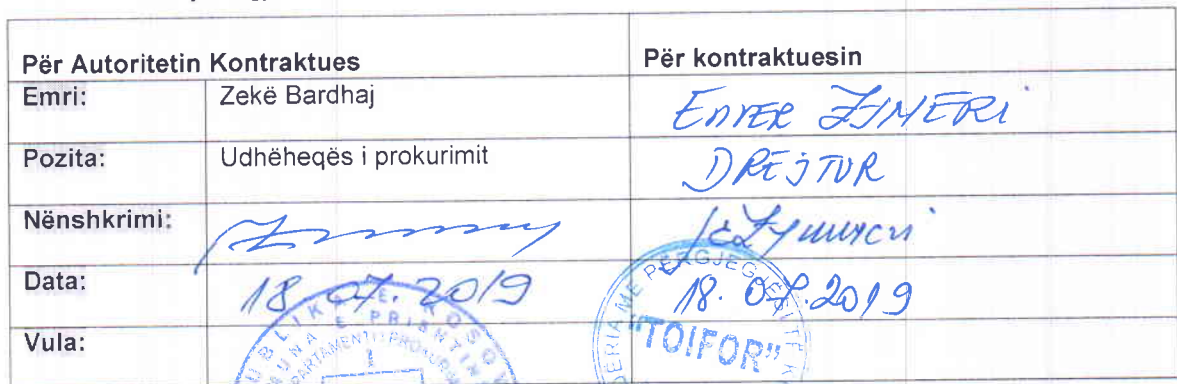 Për Autoritetin Kontraktues Për kontraktuesin
Emri: Zekë Bardhaj ENVER ZYMERI
Pozita: Udhëheqës i prokurimit DREJTOR
Nënshkrimi:
Data: 18.07.2019 18.07.2019
Vula: "TOIFOR"